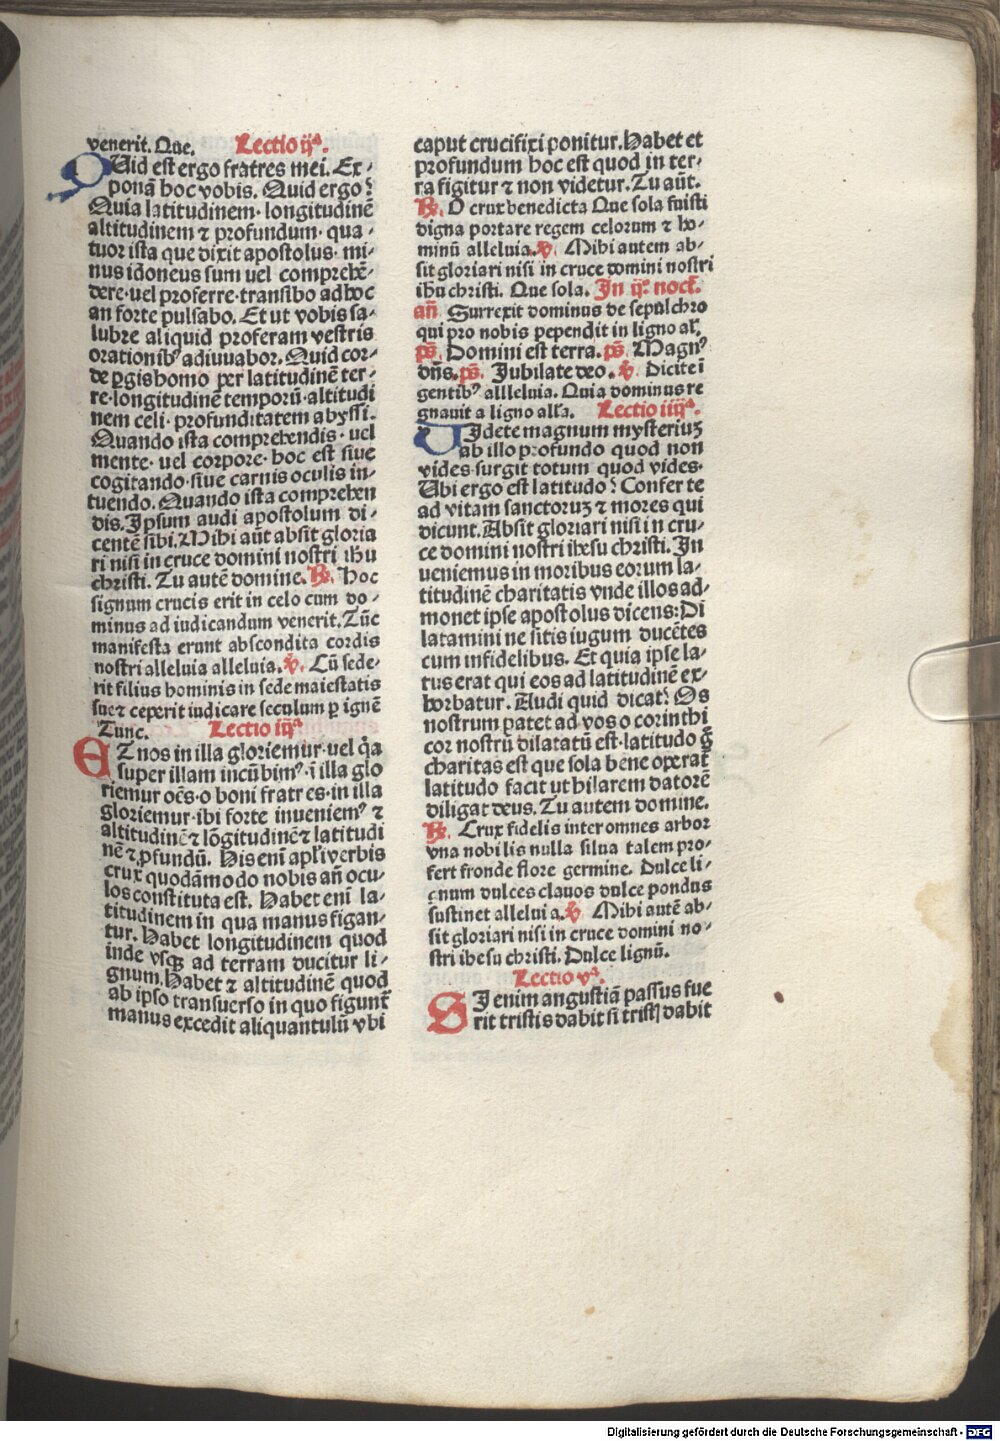 venerit. Que. Lectio ijª.
QUid est ergo fratres mei. Ex-
ponā hoc vobis. Quid ergo?
Quia latitudinem· longitudinē
altitudinem ⁊ profundum· qua-
tuor ista que dixit apostolus· mi-
nus idoneus sum uel comprehē-
dere·uel proferre·transibo ad hoc
an forte pulsabo. Et ut vobis sa-
lubre aliquid proferam vestris
orationibꝰ adiuuabor. Quid cor-
de ꝑgis homo per latitudinē ter-
re·longitudinē temporū·altitudi
nem celi·profunditatem abyssi.
Quando ista comprehendis· uel
mente· uel corpore· hoc est siue
cogitando·siue carnis oculis in-
tuendo. Quando ista comprehen
dis. Ipsum audi apostolum di-
centē sibi. Mihi aūt absit gloria
ri nisi in cruce domini nostri ihu
christi. Tu autē domine. ℟. Hoc
signum crucis erit in celo cum do-
minus ad iudicandum venerit. Tūc
manifesta erunt abscondita cordis
nostri alleluia alleluia. ℣. Cū sede-
rit filius hominis in sede maiestatis
sue⁊ ceperit iudicare seculum ꝑ ignē
Tunc. Lectio iijª
ET nos in illa gloriemur·uel q̄a
super illam incūbimꝰ·ī illa glo
riemur oēs·o boni fratres·in illa
gloriemur·ibi forte inueniemꝰ ⁊
altitudinē⁊ lōgitudinē⁊ latitudi
nē ⁊ ꝓfundū. His enī apl̄i verbis
crux quodāmodo nobis añ ocu-
los constituta est. Habet enī la-
titudinem in qua manus figan-
tur. Habet longitudinem quod
inde vsqꝫ ad terram ducitur li-
gnum. Habet ⁊ altitudinē quod
ab ipso transuerso in quo figunt̄
manus excedit aliquantulū vbi
caput crucifixi ponitur. Habet et
profundum hoc est quod in ter-
ra figitur ⁊ non videtur. Tu aūt.
℟. O crux benedicta Que sola fuisti
digna portare regem celorum ⁊ ho-
minū alleluia. ℣. Mihi autem ab-
sit gloriari nisi in cruce domini nostri
ihu christi. Que sola. In ijº. noct̄.
añ Surrexit dominus de sepulchro
qui pro nobis pependit in ligno al̄.
ps̄. Domini est terra. ps̄. Magnꝰ
dn̄s. ps̄. Jubilate deo. ℣. Dicite ī
gentibꝰ allleluia. Quia dominus re
gnauit a ligno all̄a. Lectio iiijª.
VIdete magnum mysteriuꝫ
ab illo profundo quod non
vides·surgit totum quod vides.
Ubi ergo est latitudo? Confer te
ad vitam sanctoruꝫ ⁊ mores qui
dicunt. Absit gloriari nisi in cru-
ce domini nostri ihesu christi. In
ueniemus in moribus eorum la-
titudinē charitatis vnde illos ad-
monet ipse apostolus dicens: Di
latamini ne sitis iugum ducētes
cum infidelibus. Et quia ipse la-
tus erat qui eos ad latitudinē ex-
horbatur. Audi quid dicat? Os
nostrum patet ad vos o corinthi
cor nostrū dilatatū est·latitudo ḡ
charitas est que sola bene operat̄
latitudo facit ut hilarem datorē
diligat deus. Tu autem domine.
℟. Crux fidelis inter omnes arbor
vna nobilis nulla silua talem pro-
fert fronde flore germine. Dulce li-
gnum dulces clauos dulce pondus
sustinet alleluia. ℣. Mihi autē ab-
sit gloriari nisi in cruce domini no-
stri ihesu christi. Dulce lignū.
Lectio vª.
SI enim angustiā passus fue
rit tristis dabit si trist dabit
Digitalisierung gefördert durch die Deutsche Forschungsgemeinschaft - DFG